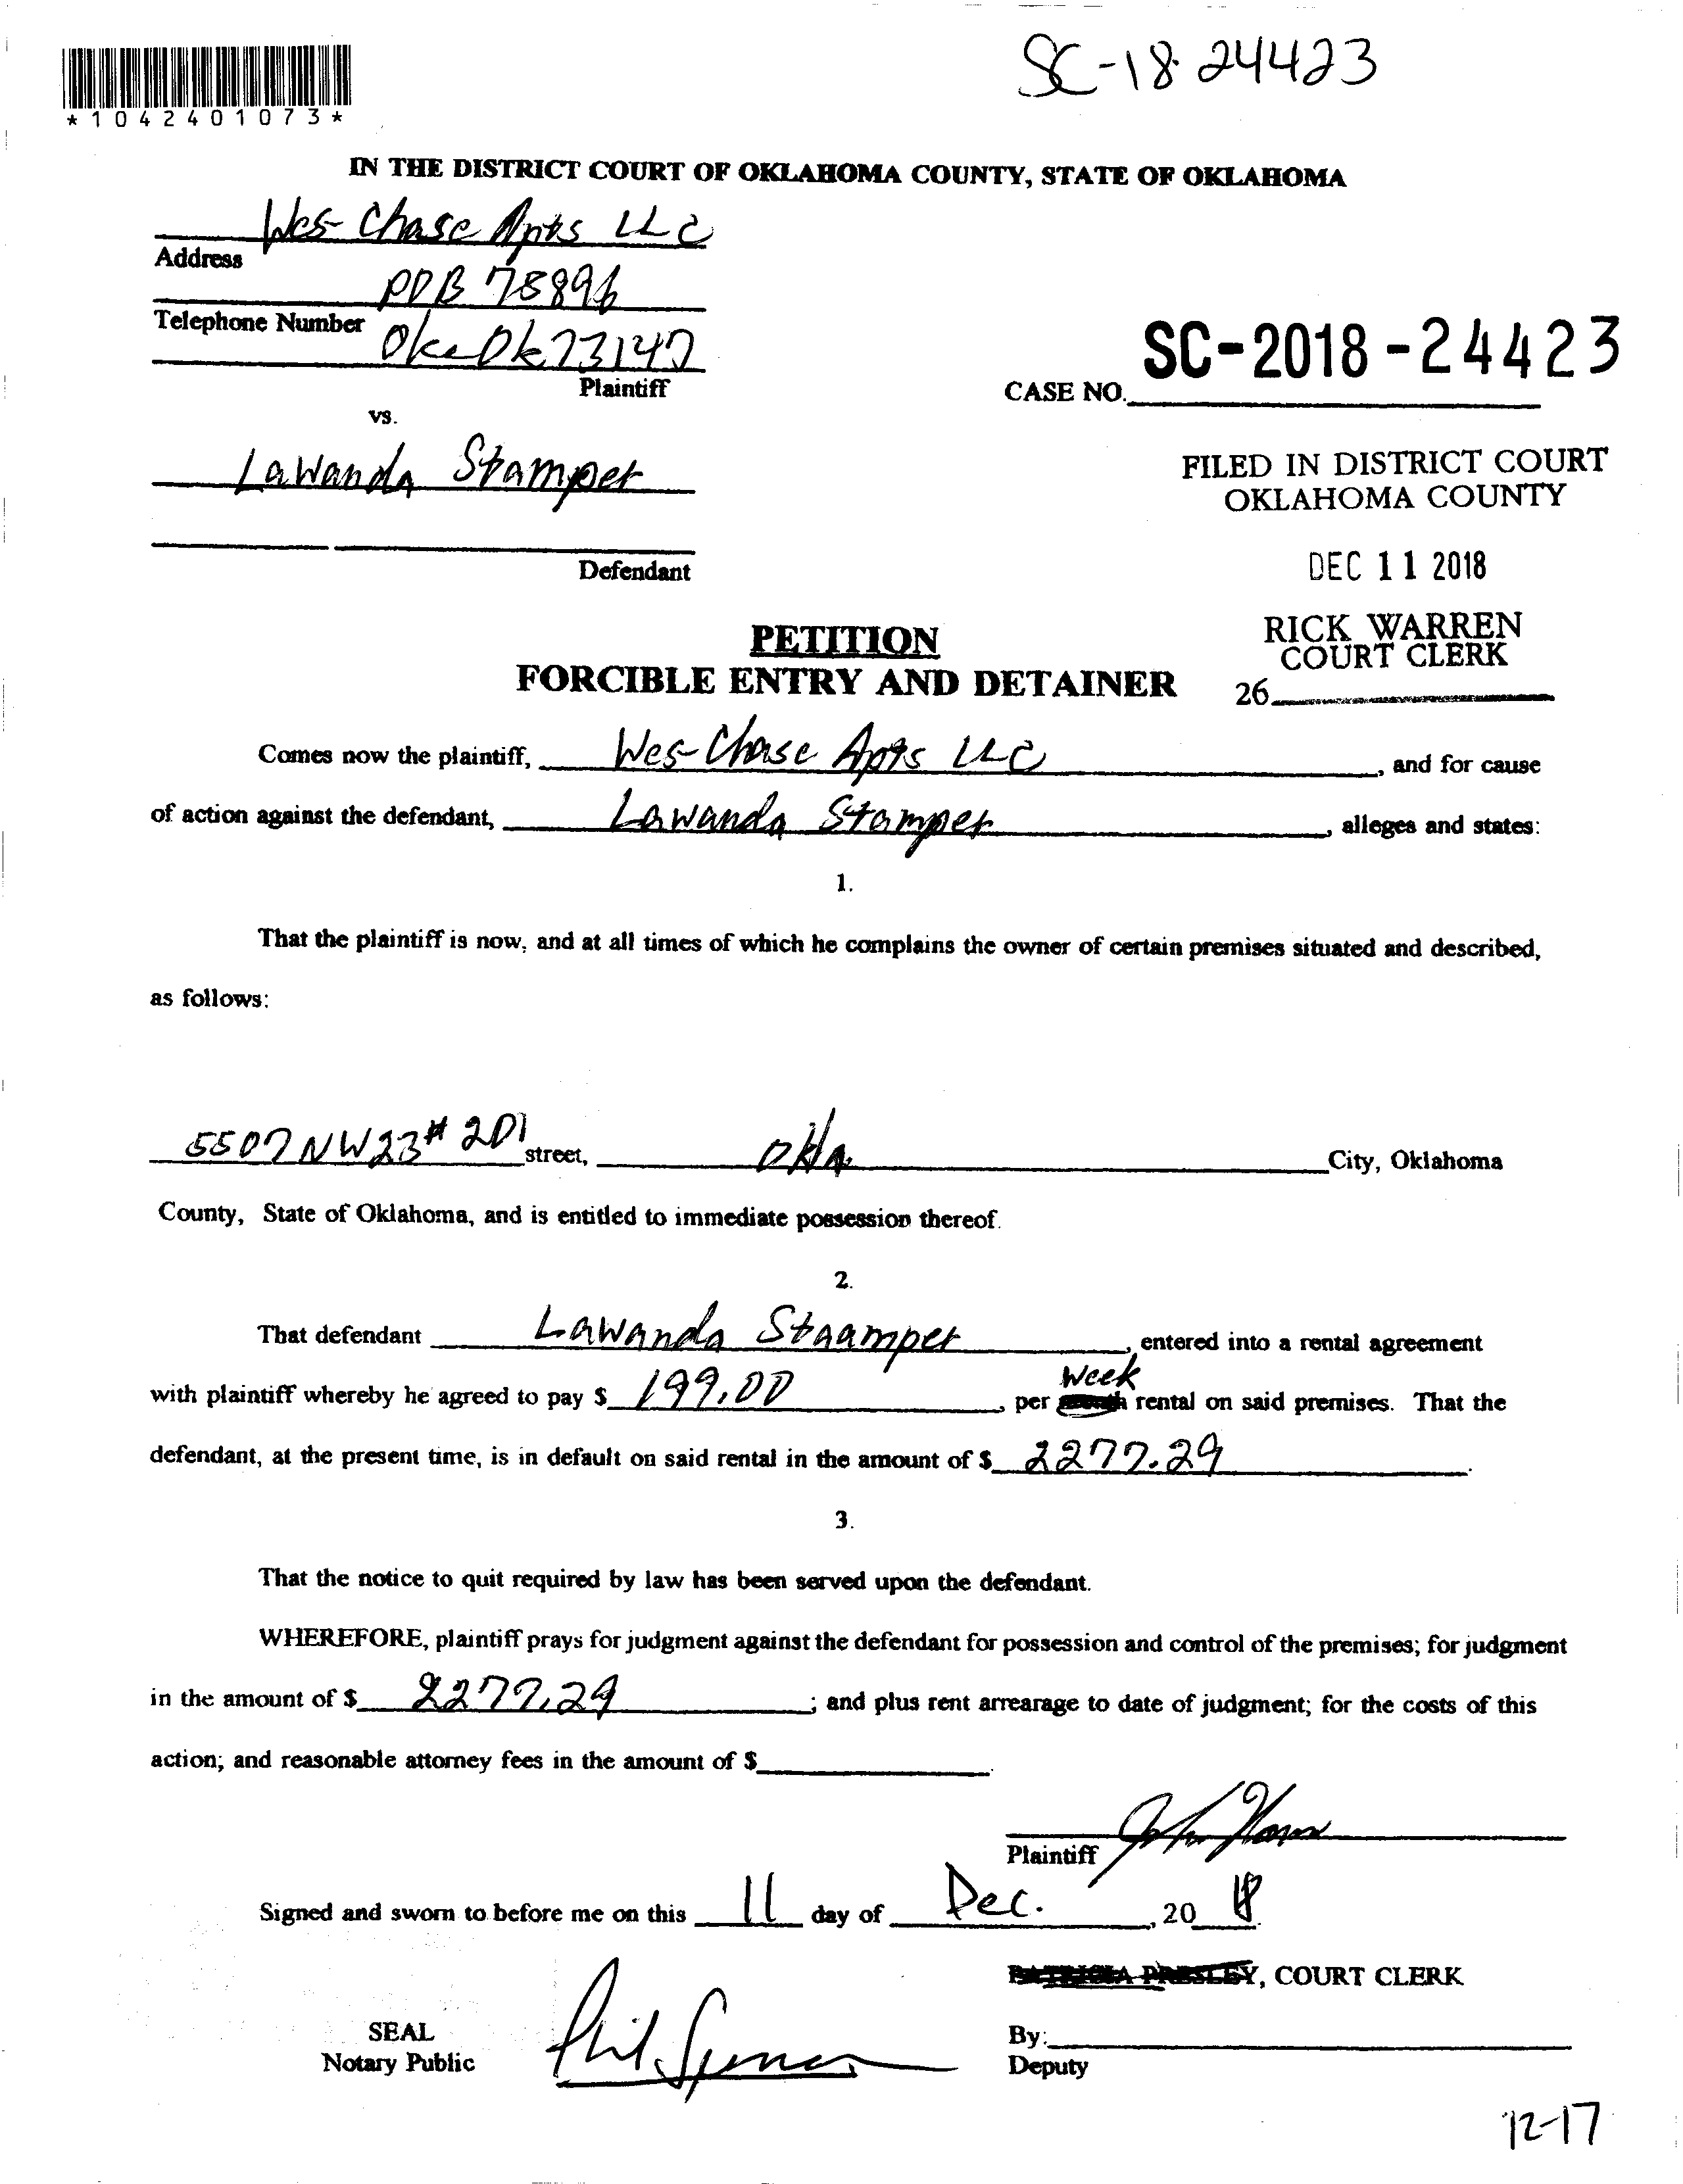 SC-18-24423
*1042401073*
IN THE DISTRICT COURT OF OKLAHOMA COUNTY, STATE OF OKLAHOMA
Wes-Chase Apts LLC
Address
POB 75896
Telephone Number
Okc Ok 73147
Plaintiff
SC-2018-24423
CASE NO.
vs.
LaWanda Stamper
Defendant
FILED IN DISTRICT COURT
OKLAHOMA COUNTY
DEC 11 2018
RICK WARREN
COURT CLERK
26
PETITION
FORCIBLE ENTRY AND DETAINER
Comes now the plaintiff, Wes-Chase Apts LLC, and for cause
of action against the defendant, Lawanda Stamper, alleges and states:
1.
That the plaintiff is now, and at all times of which he complains the owner of certain premises situated and described,
as follows:
5507 NW 23 # 201 street, Okla. City, Oklahoma
County, State of Oklahoma, and is entitled to immediate possession thereof.
2.
That defendant Lawanda Staamper, entered into a rental agreement
Week
with plaintiff whereby he agreed to pay $ 199.00, per month rental on said premises. That the
defendant, at the present time, is in default on said rental in the amount of $ 2277.29.
3.
That the notice to quit required by law has been served upon the defendant.
WHEREFORE, plaintiff prays for judgment against the defendant for possession and control of the premises; for judgment
in the amount of $ 2277.29; and plus rent arrearage to date of judgment; for the costs of this
action; and reasonable attorney fees in the amount of $.
Plaintiff
Signed and sworn to before me on this 11 day of Dec., 20 18.
PATRICIA PRESLEY, COURT CLERK
SEAL
Notary Public
By:
Deputy
12-17